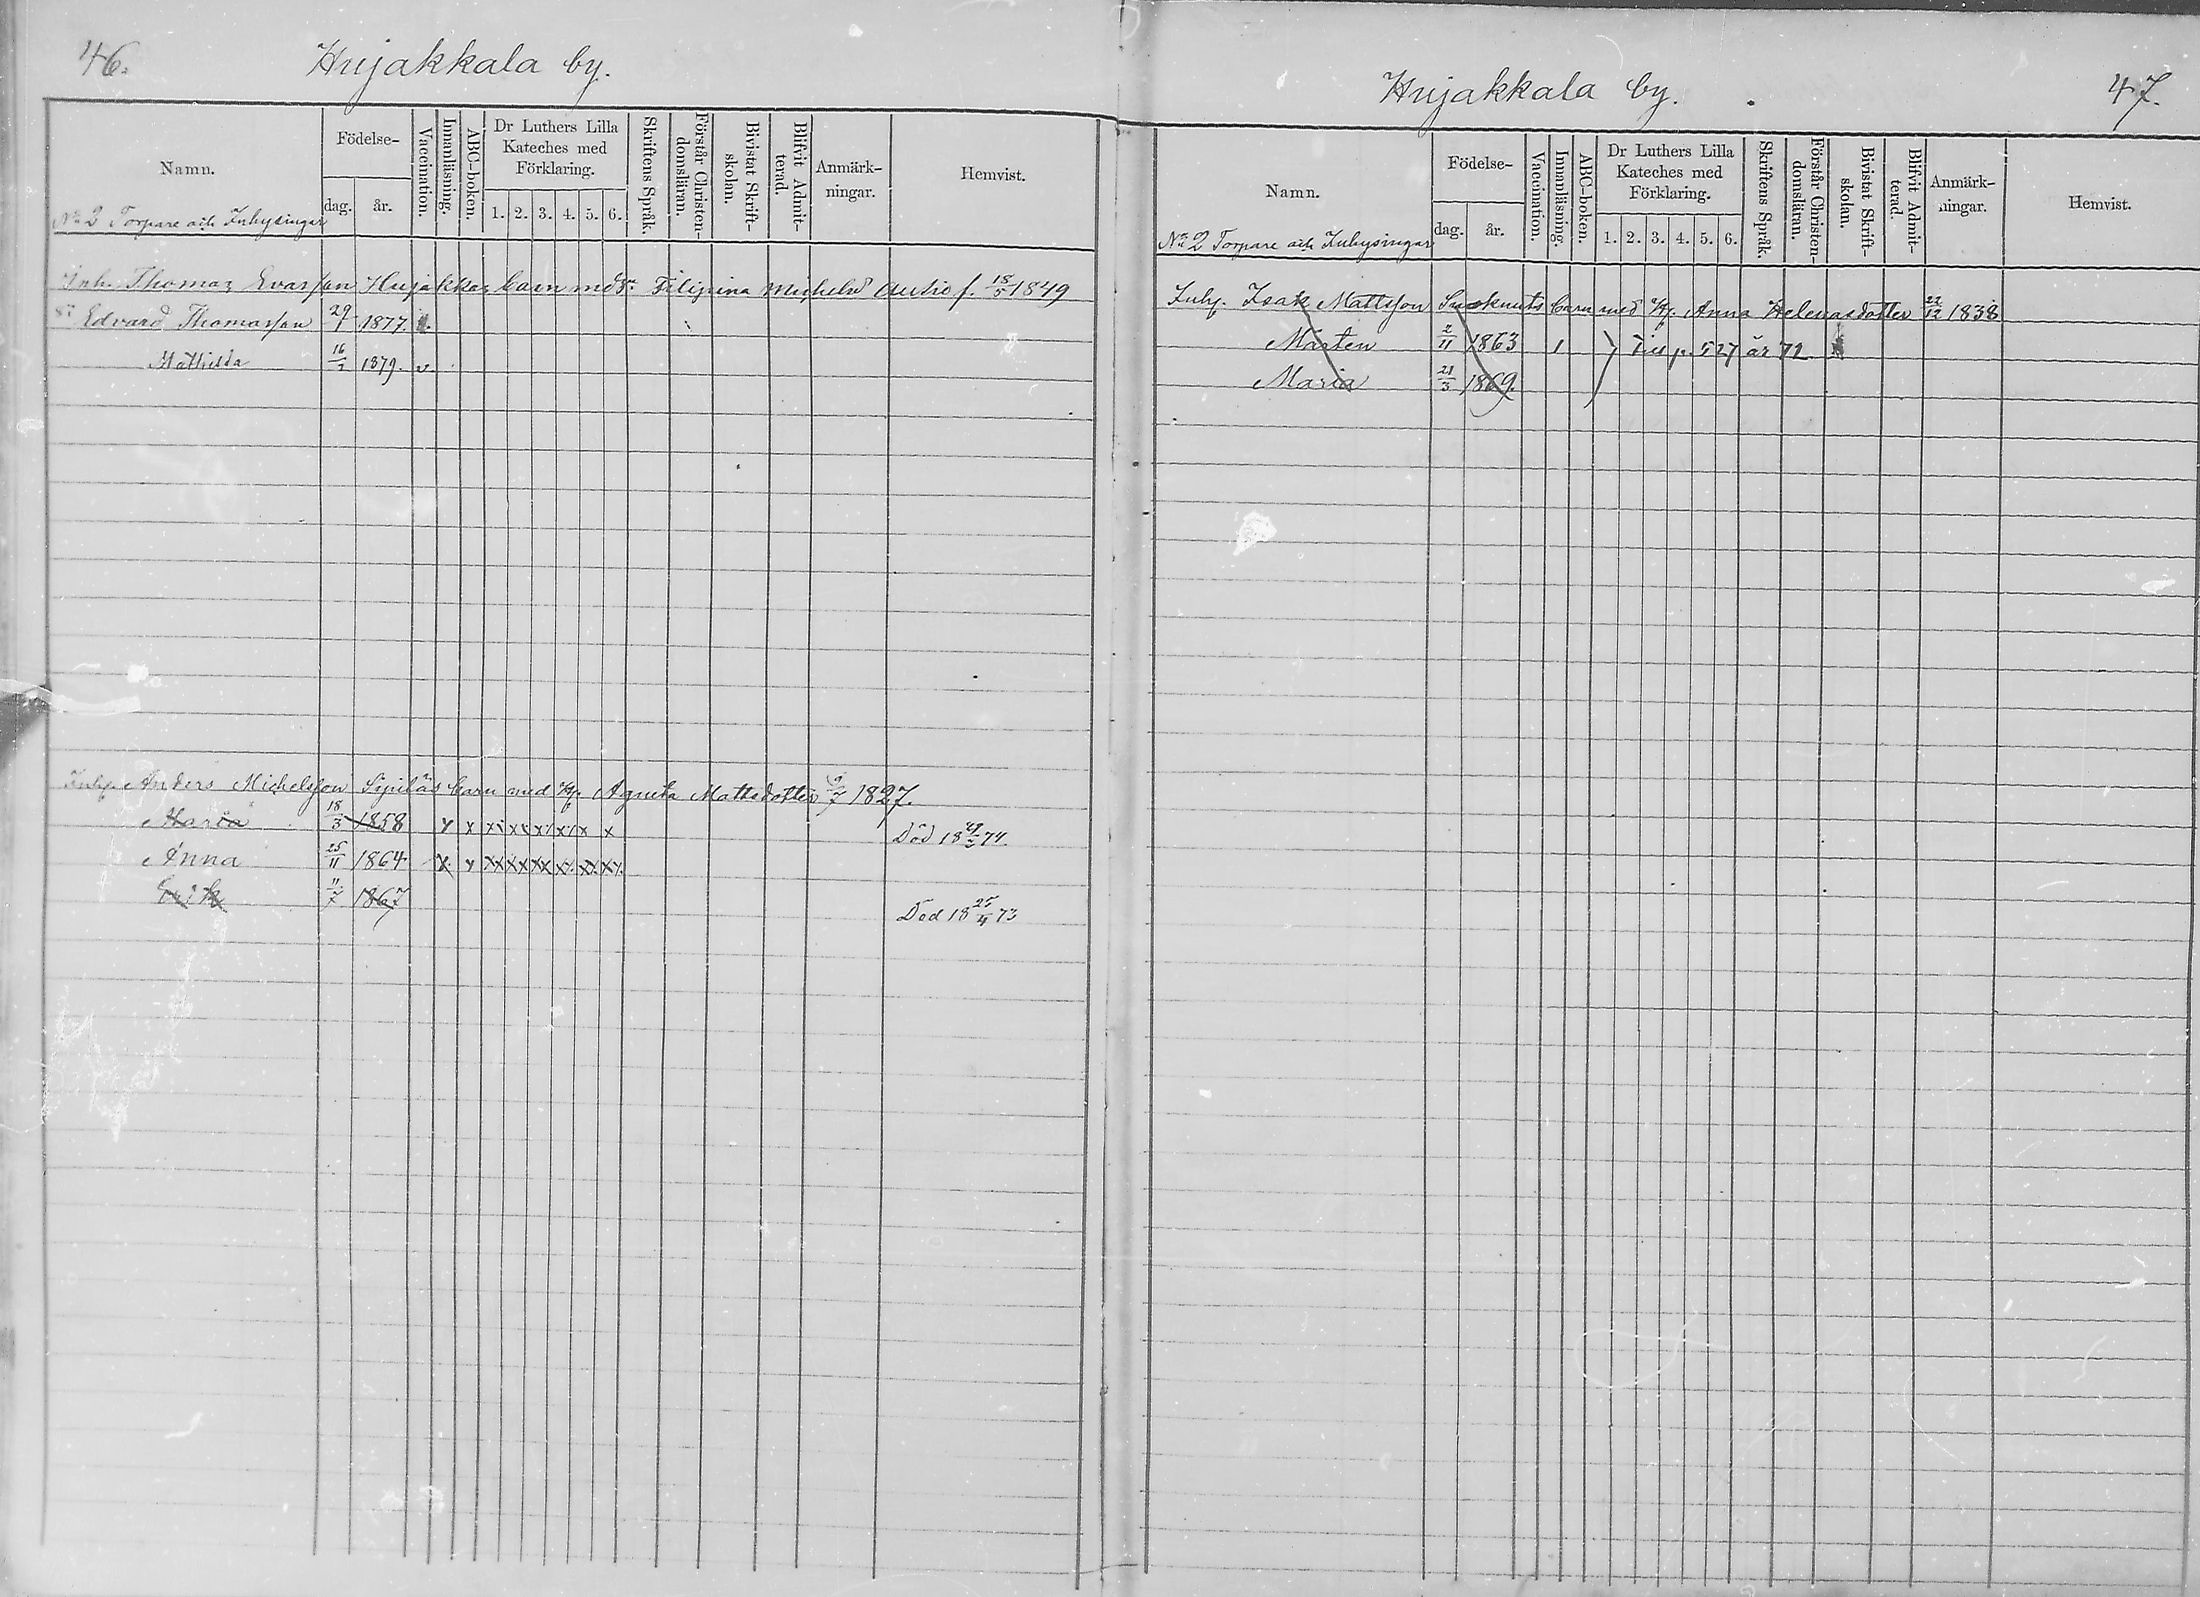 46.
Hujakkala by.
Namn.
Födelse-
dag.
år.
Vaccination.
Innanläsning.
ABC-boken.
Dr Luthers Lilla Kateches med Förklaring.
1. 2. 3. 4. 5. 6.
Skriftens Språk.
Förstår Christen-domsläran.
Bivistat Skrift-skolan.
Blifvit Admit-terad.
Anmärk-ningar.
Hemvist.
No 2 Torpare och Inhysingar
Inh. Thomas Evasson Hujakkas barn med Filipina Michelsd Autio f. 18/5 1849
Edvard Thomasson 29/1 1877
Mathilda 16/ 1879. v
Inhys. Anders Michelsson Sipiläs barn med Hu. Agneta Mattsdotter 9/7 1827.
Maria 18/3 1858 x x x x x x x x Död 18 74.
Anna 25/11 1864 x x x x x x x x
Erik 11/7 1867 Död 18 25/4 73
Hujakkala by.
47.
Namn.
Födelse-
dag.
år.
Vaccination.
Innanläsning.
ABC-boken.
Dr Luthers Lilla Kateches med Förklaring.
1. 2. 3. 4. 5. 6.
Skriftens Språk.
Förstår Christen-domsläran.
Bivistat Skrift-skolan.
Blifvit Admit-terad.
Anmärk-ningar.
Hemvist.
No 2 Torpare och Inhysingar
Inhys. Isak Mattsson barn med Hu. Anna Helenasdotter 22/12 1838
Mårten 2/11 1863 1 Till p. 527 år 72
Maria 21/3 1869.